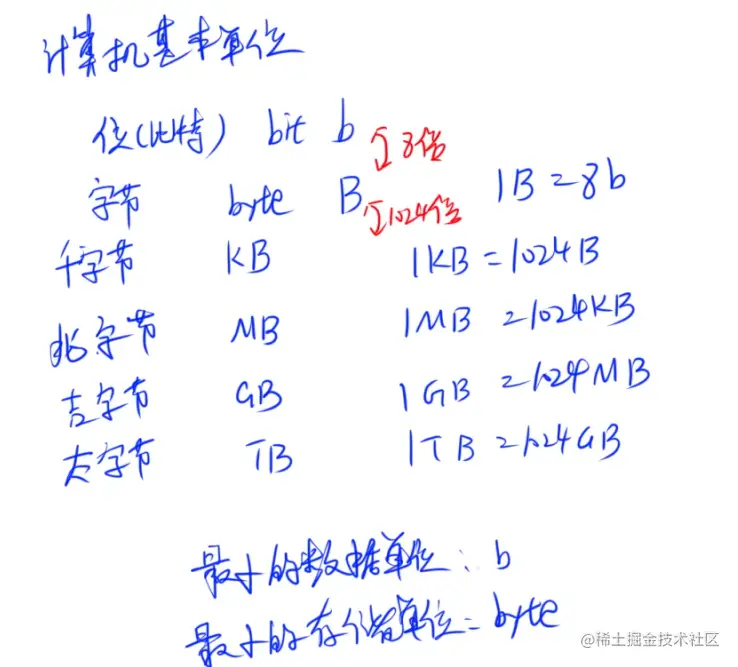 计算机基本单位
位(比特) bit b 8倍
字节 byte B 1024位 1B=8b
千字节 KB 1KB=1024B
兆字节 MB 1MB=1024KB
吉字节 GB 1GB=1024MB
太字节 TB 1TB=1024GB
最小的数据单位: b
最小的存储单位=byte
@稀土掘金技术社区